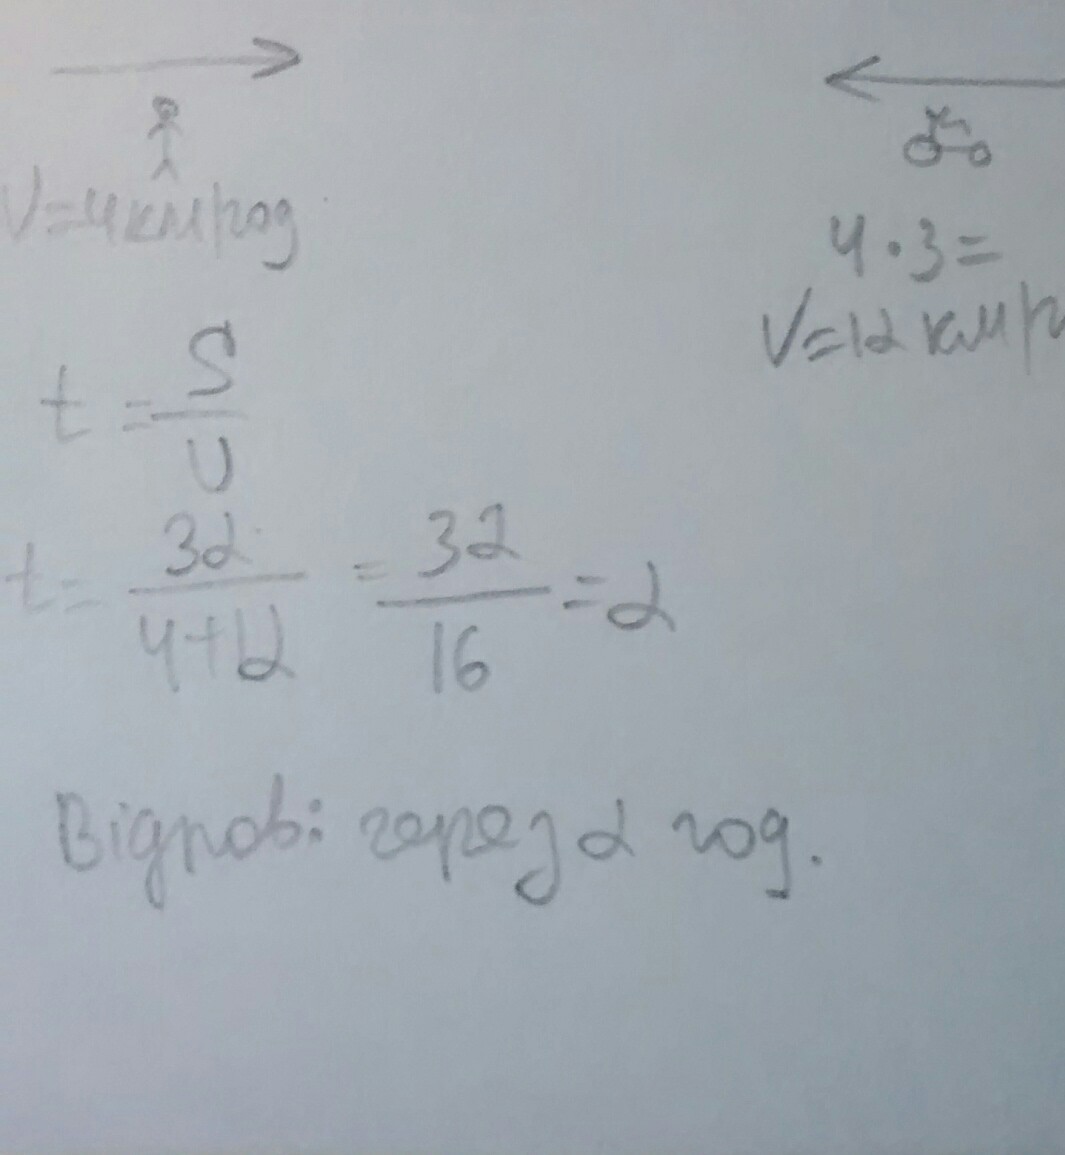 V=4км/год
4·3=
V=12 км/г
t=S/U
t=32/4+12=32/16=2
Відповь: через 2 год.